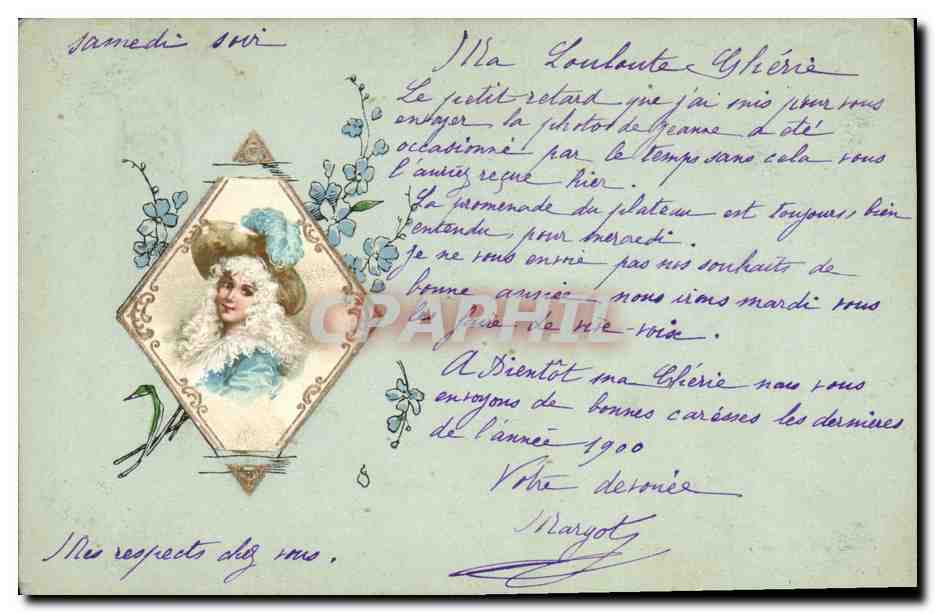 samedi soir
Ma Louloute Chérie
Le petit retard que j'ai mis pour vous
envoyer la photo de Jeanne a été
occasionné par le temps sans cela vous
l'auriez reçue hier.
La promenade du plateau est toujours, bien
entendu, pour mercredi.
Je ne vous envoie pas nos souhaits de
bonne année, nous irons mardi vous
les faire de vive-voix.
A Bientôt ma Chérie nous vous
envoyons de bonnes caresses les dernières
de l'année 1900
Votre dévouée
Margot
Mes respects chez vous.
CPAPHIL